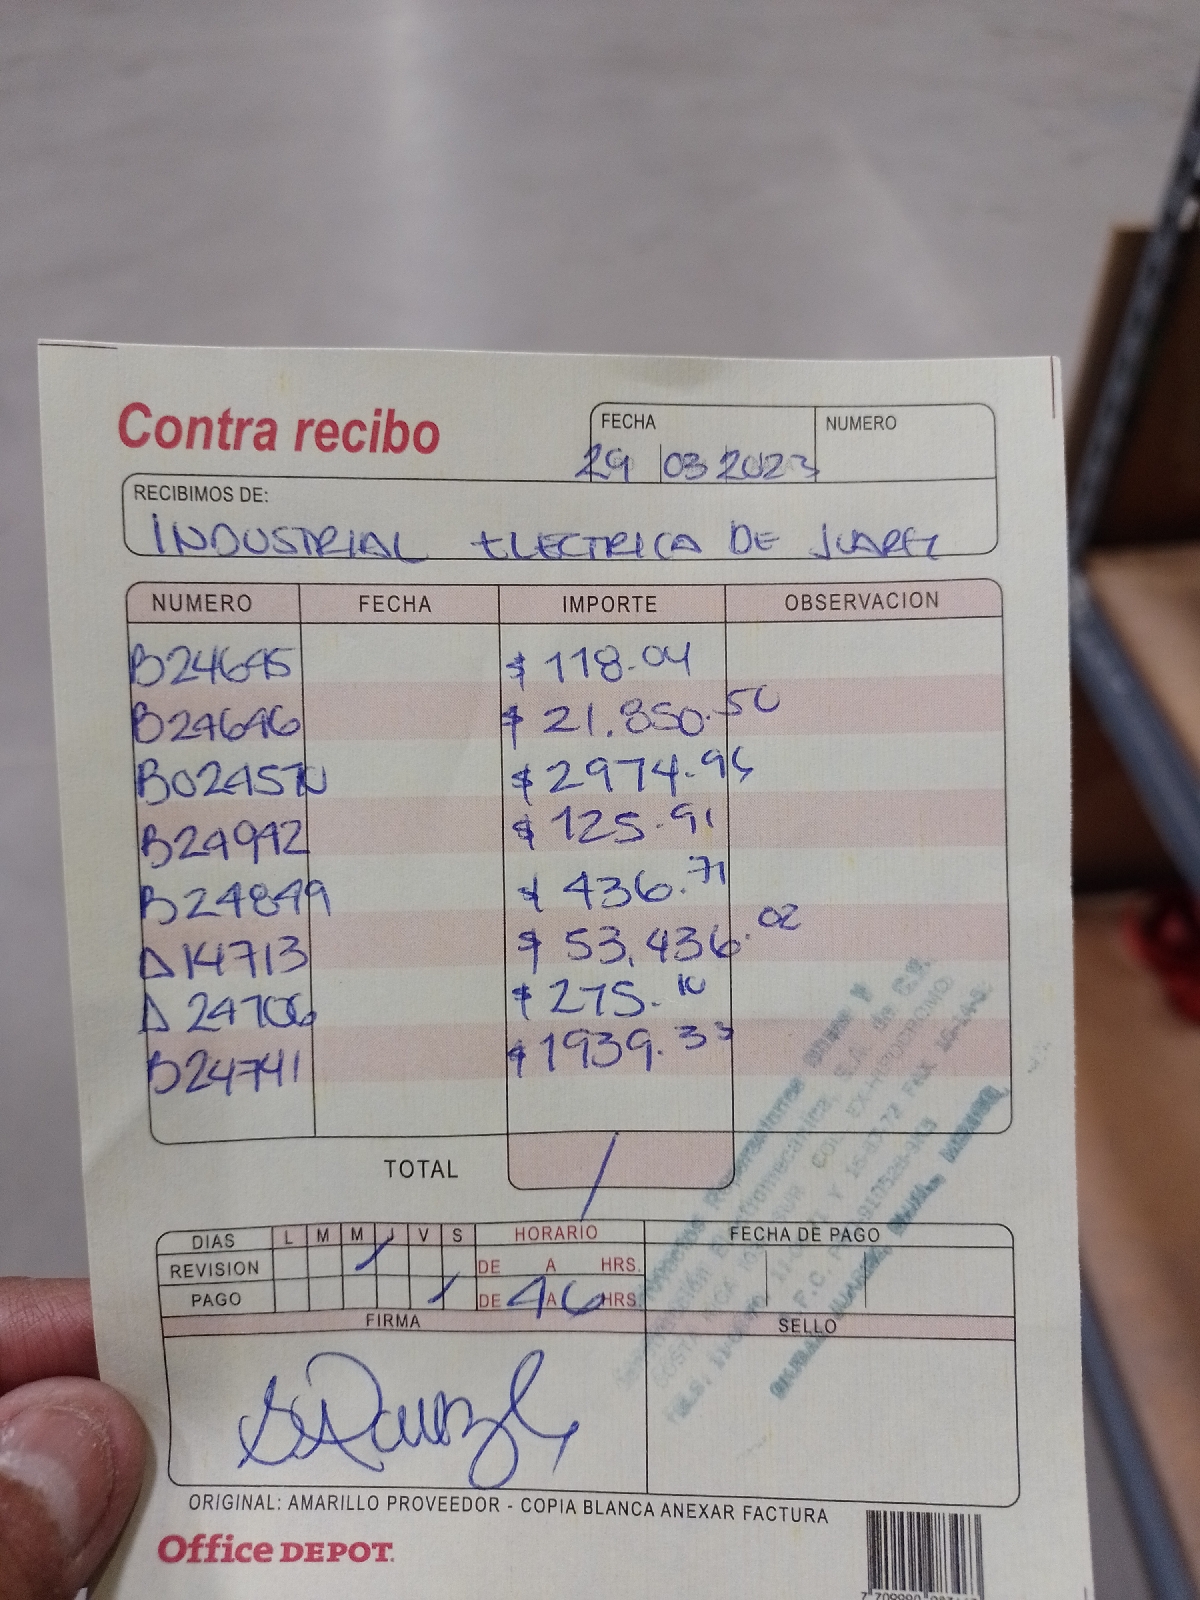 Contra recibo
FECHA
NUMERO
29 03 2023
RECIBIMOS DE:
INDUSTRIAL ELECTRICA DE JUAREZ
NUMERO FECHA IMPORTE OBSERVACION
B24695 $ 118.04
B24696 $ 21.850.50
$ 2974.96
B24942 $ 125.91
B24849 $ 436.71
A14713 $ 53,436.02
A 24706 $ 275.10
B24741 $ 1939.33
TOTAL
DIAS L M M J V S HORARIO FECHA DE PAGO
REVISION DE A HRS.
PAGO DE 4 A 6 HRS.
FIRMA SELLO
ORIGINAL: AMARILLO PROVEEDOR - COPIA BLANCA ANEXAR FACTURA
Office DEPOT.